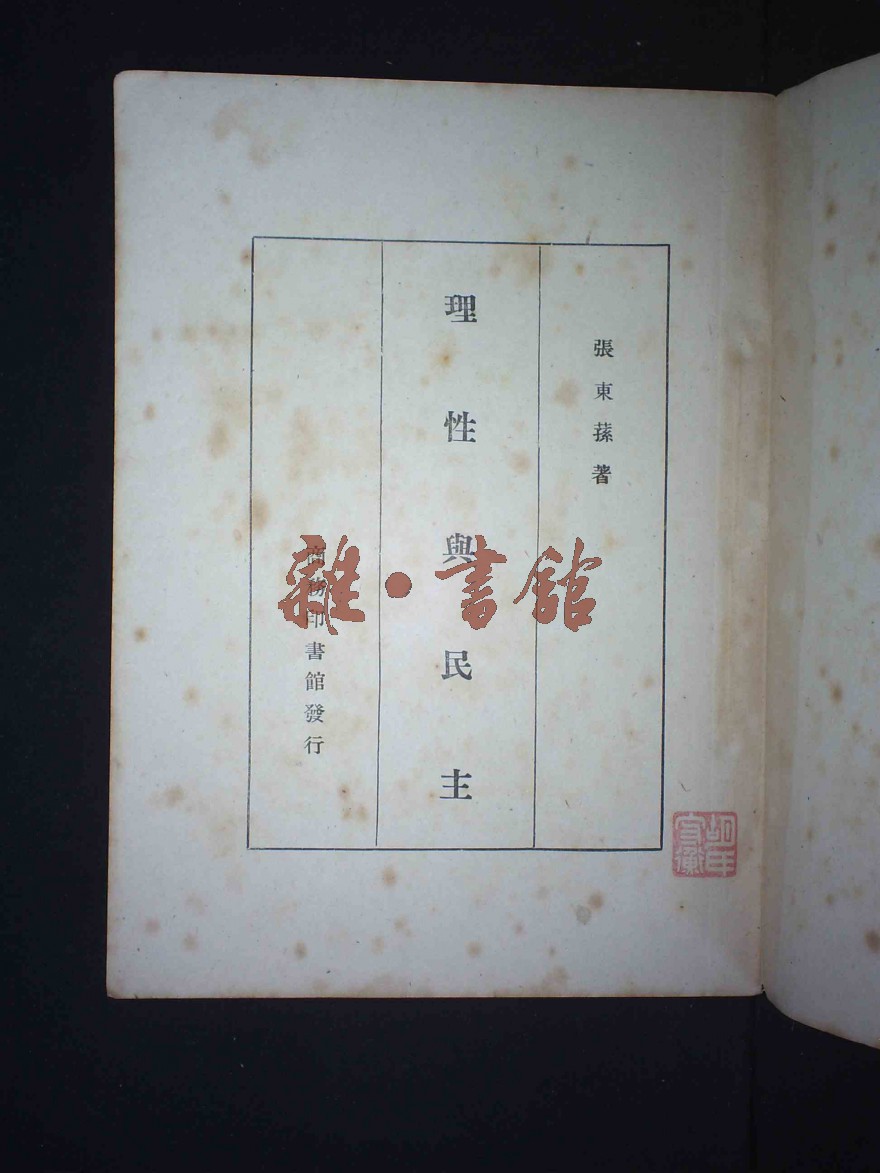 張東蓀著
理性與民主
商務印書館發行
雜·書館